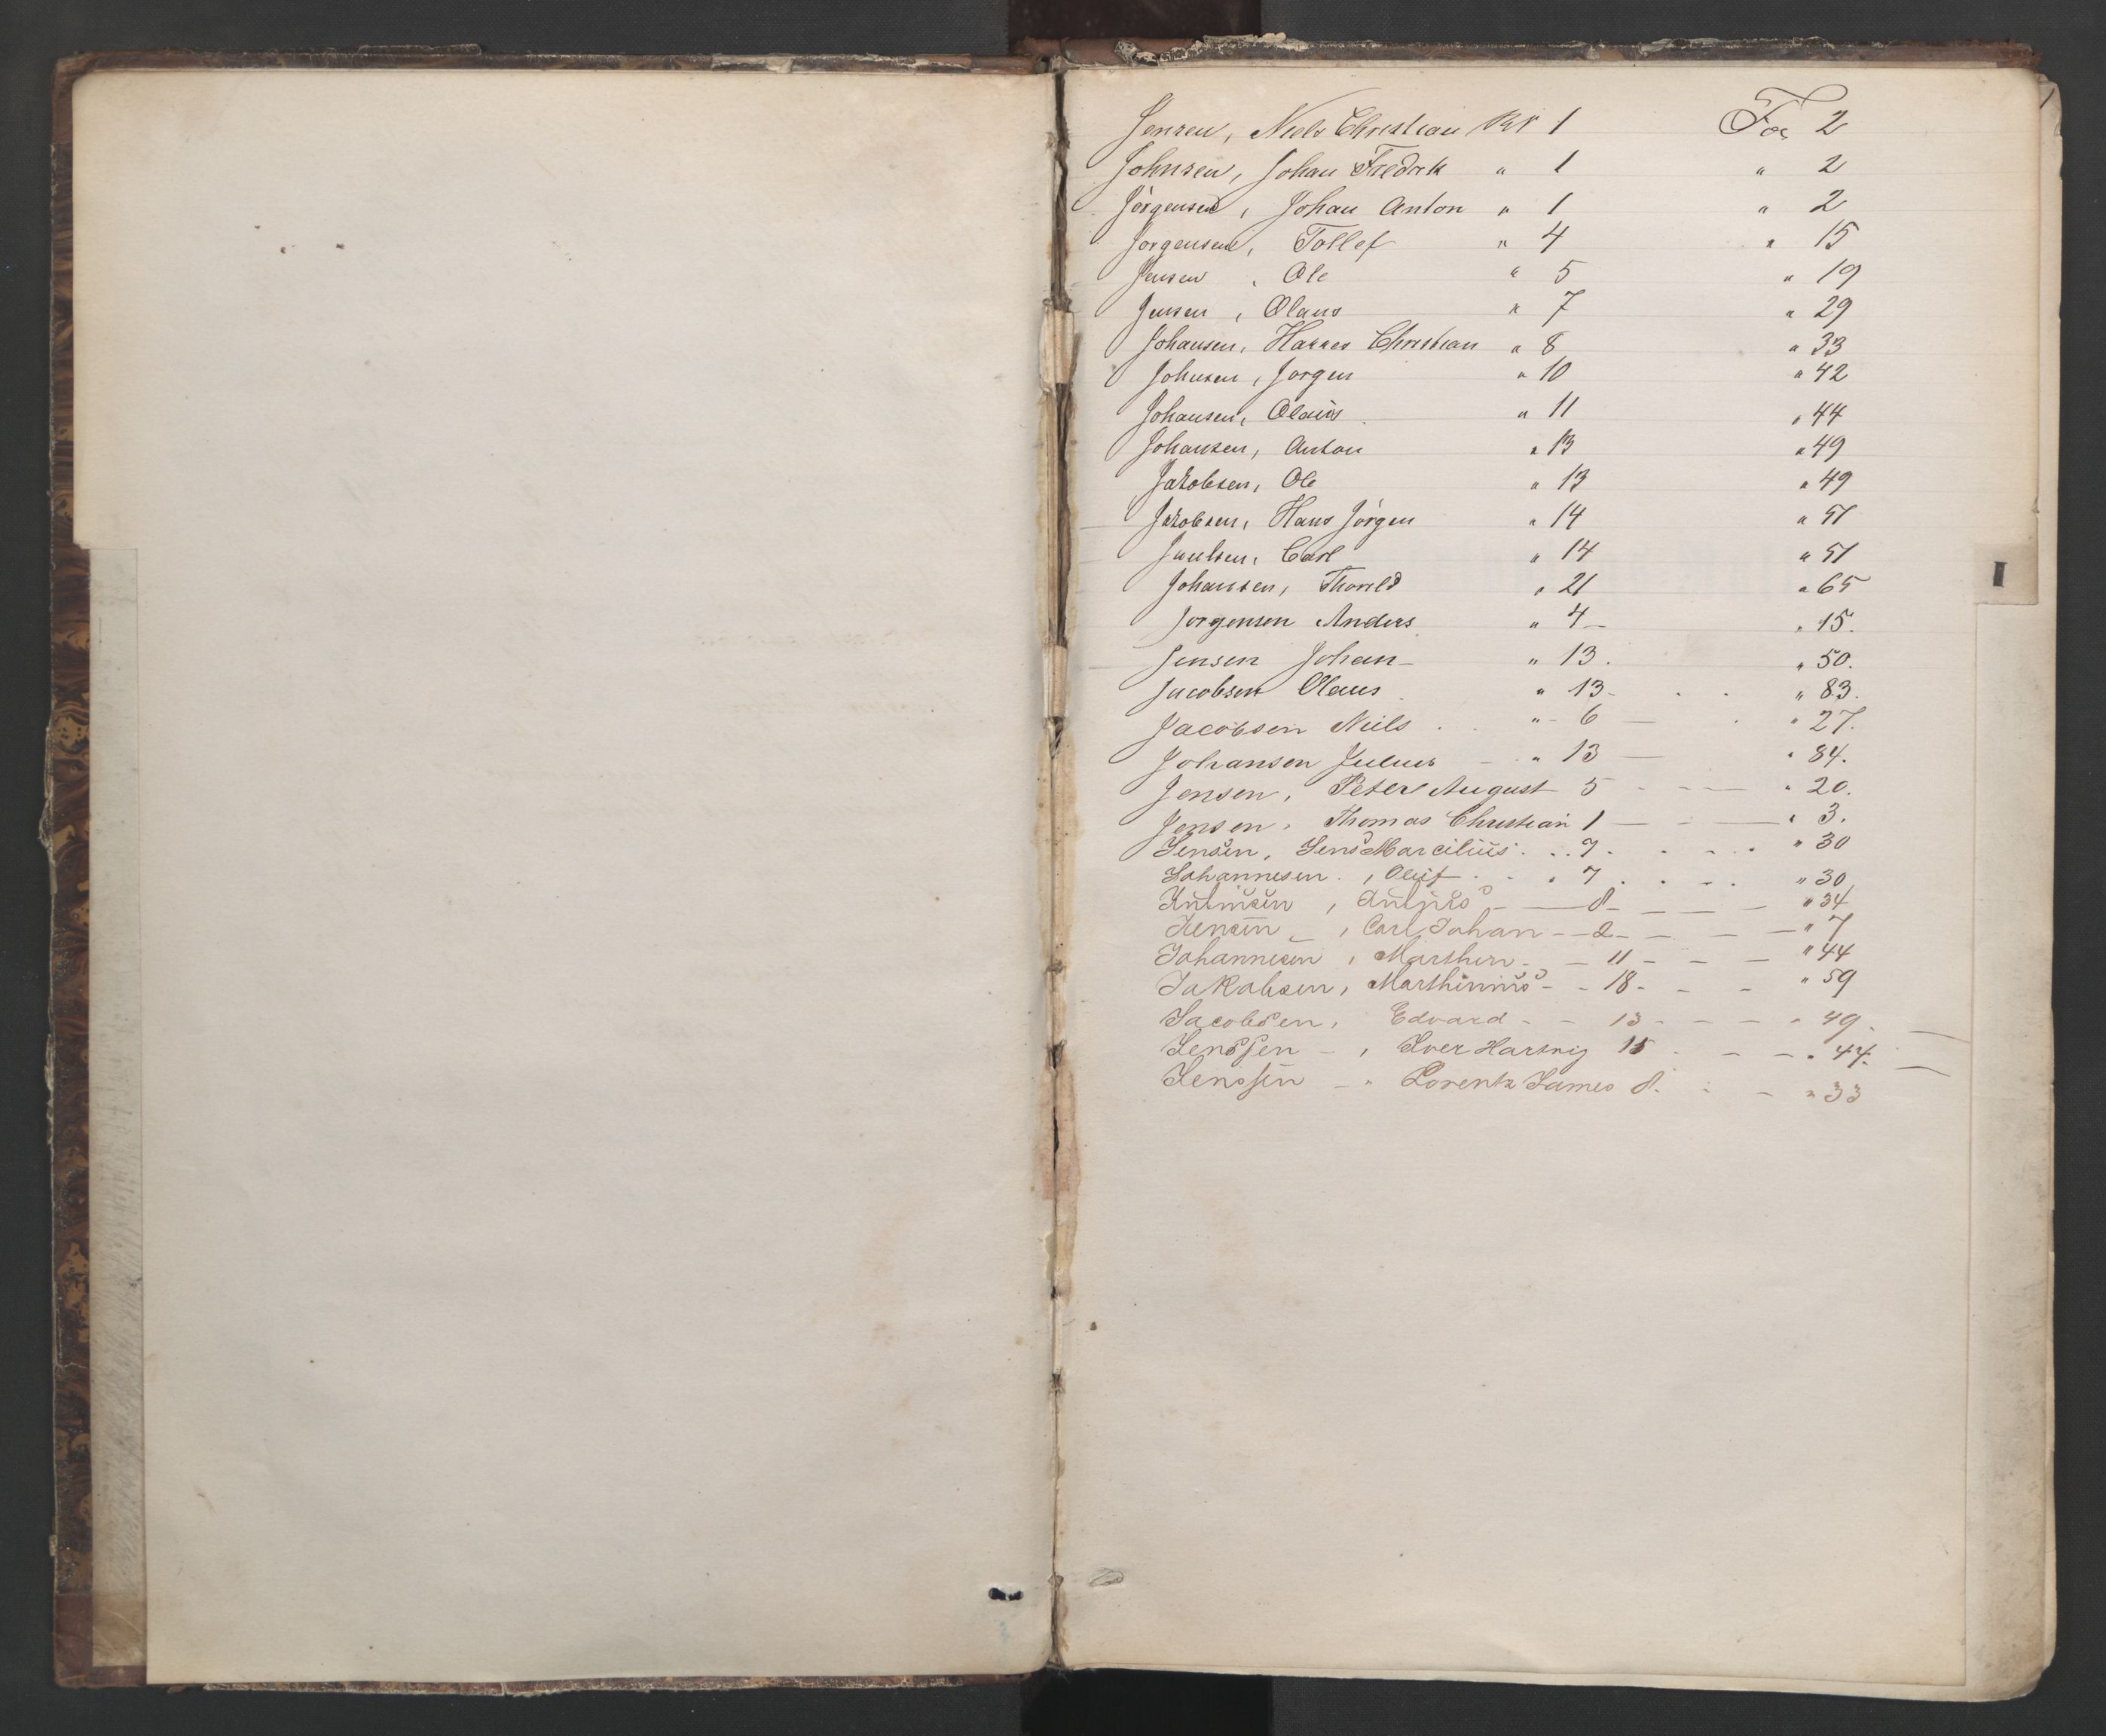 Jensen, Niels Christian No 1 Fol 2
Johnsen, Johan Fredrk " 1 " 2
Jörgensen, Johan Anton " 1 " 2
Jorgensen, Tollef " 4 " 15
Jensen, Ole " 5 " 19
Jensen, Olaus " 7 " 29
Johansen, Hannes Christian " 8 " 33
Johnsen, Jorgen " 10 " 42
Johansen, Olaus " 11 " 44
Johansen, Anton " 13 " 49
Jakobsen, Ole " 13 " 49
Jakobsen, Hans Jörgen " 14 " 51
Carl " 14 " 51
Johansen, Thorvld " 21 " 65
Jorgensen Anders " 4 " 15.
Jensen Johan " 13. " 50.
Jacobsen Olaus " 13 " 83.
Jacobsen Niels " 6 " 27.
Johansen Julius " 13 " 84.
Jensen, Peter August 5 " 20.
Jensen, Thomas Christian 1 " 3.
Jensen, Jens Marcilius 7 " 30
Johannesen, Oluf " 7 " 30
8 " 34
Jensen, Carl Johan 2 " 7
Johannesen, Marthin 11 " 44
Jakobsen, Marthinius 18 " 59
Jacobsen, Edvard 13 " 49
Jenssen, Iver Hartvig 15 " 44.
Jenssen " Lorentz James 8. " 33
I